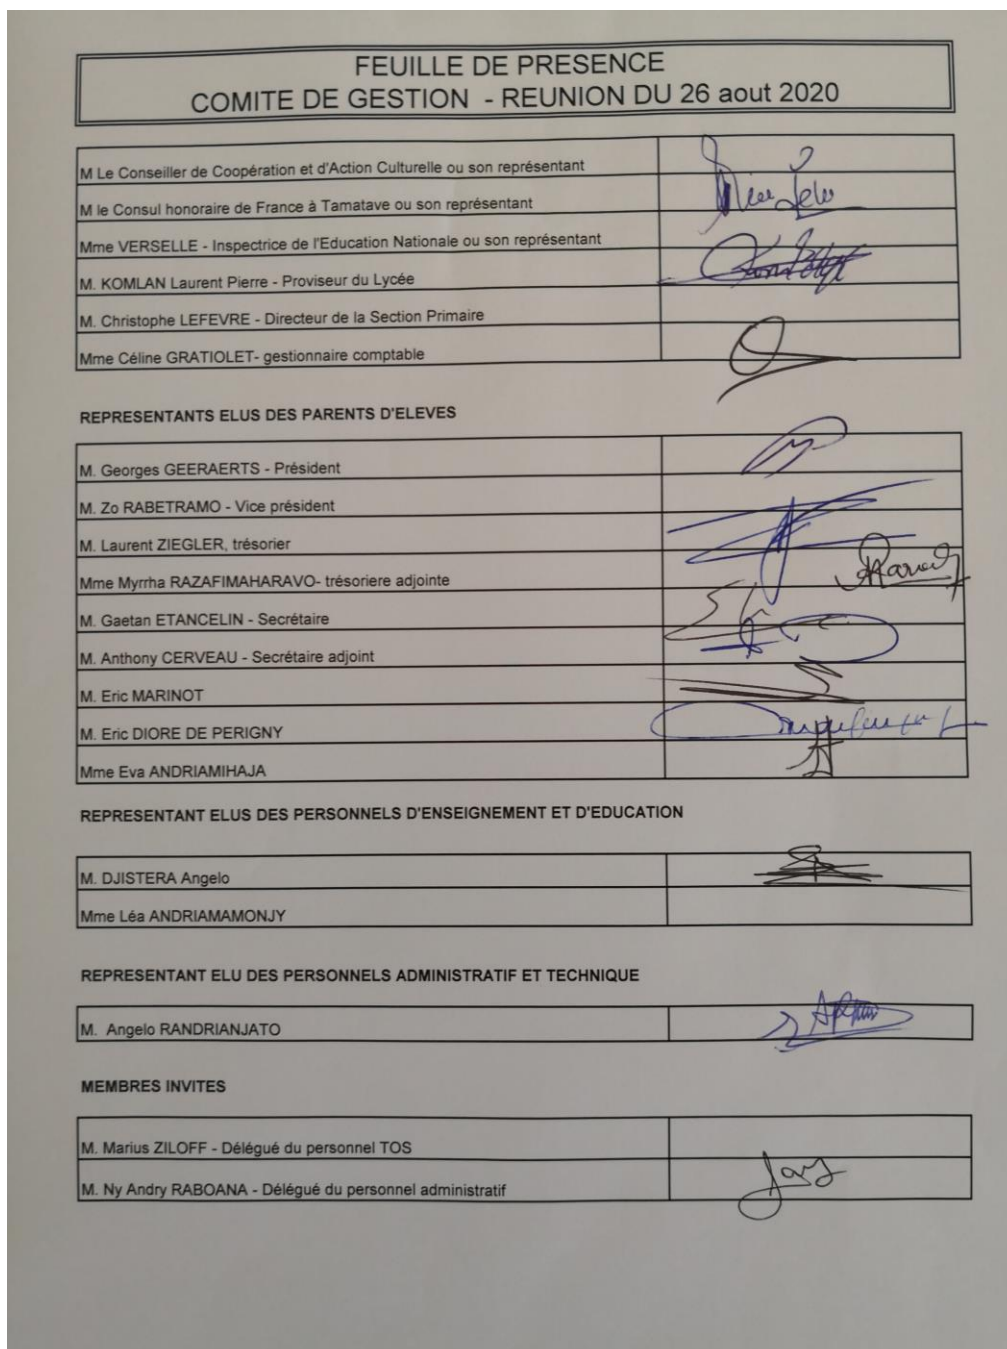 FEUILLE DE PRESENCE
COMITE DE GESTION - REUNION DU 26 aout 2020
M Le Conseiller de Coopération et d'Action Culturelle ou son représentant
M le Consul honoraire de France à Tamatave ou son représentant
Mme VERSELLE - Inspectrice de l'Education Nationale ou son représentant
M. KOMLAN Laurent Pierre - Proviseur du Lycée
M. Christophe LEFEVRE - Directeur de la Section Primaire
Mme Céline GRATIOLET- gestionnaire comptable
REPRESENTANTS ELUS DES PARENTS D'ELEVES
M. Georges GEERAERTS - Président
M. Zo RABETRAMO - Vice président
M. Laurent ZIEGLER, trésorier
Mme Myrrha RAZAFIMAHARAVO- trésoriere adjointe
M. Gaetan ETANCELIN - Secrétaire
M. Anthony CERVEAU - Secrétaire adjoint
M. Eric MARINOT
M. Eric DIORE DE PERIGNY
Mme Eva ANDRIAMIHAJA
REPRESENTANT ELUS DES PERSONNELS D'ENSEIGNEMENT ET D'EDUCATION
M. DJISTERA Angelo
Mme Léa ANDRIAMAMONJY
REPRESENTANT ELU DES PERSONNELS ADMINISTRATIF ET TECHNIQUE
M. Angelo RANDRIANJATO
MEMBRES INVITES
M. Marius ZILOFF - Délégué du personnel TOS
M. Ny Andry RABOANA - Délégué du personnel administratif